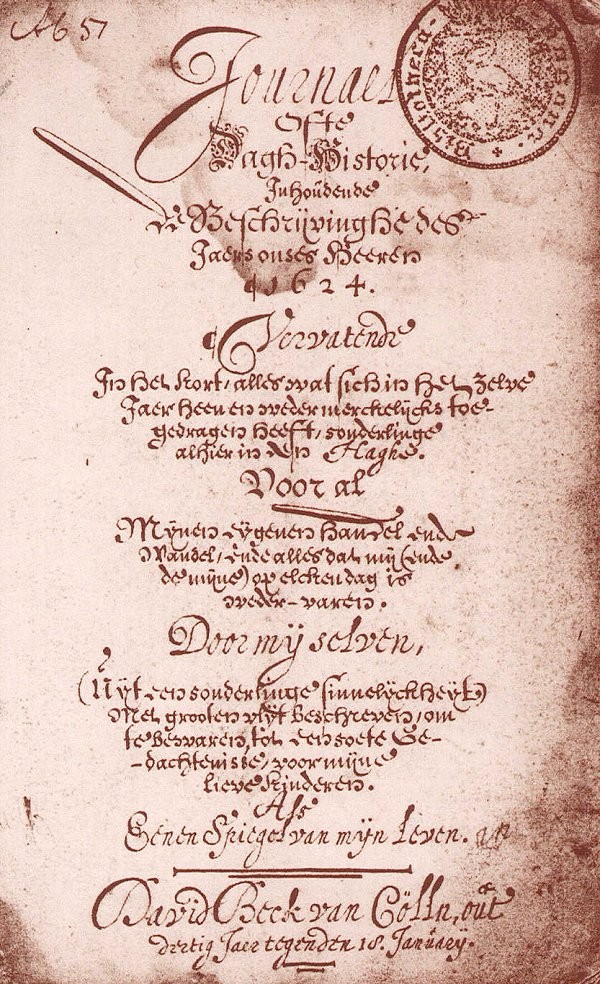 Ab 51
Journael
Ofte
Dagh-Historie,
Inhoudende
de Beschrijvinghe des
Jaers onses Heeren
1624.
Vervatende
In het kort, alles wat sich in het zelve
Jaer heen en weder merckelijcks toe-
gedragen heeft, sonderlinge
alhier in den Haghe.
Voor al
Mijnen eygenen handel ende
Wandel, ende alles dat mij (ende
de mijne) op elcken dag is
weder-varen.
Door mij selven,
(Uÿt een sonderlinge sinnelijckheyt)
Met grooten vlijt beschreven, om
te bewaren, tot een soete Ge-
-dachtenisse, voor mijne
lieve kinderen.
Als
Eenen Spiegel van mijn Leven.
David Beck van Cölln, out
dertig Jaer tegen den 18. Januarij.